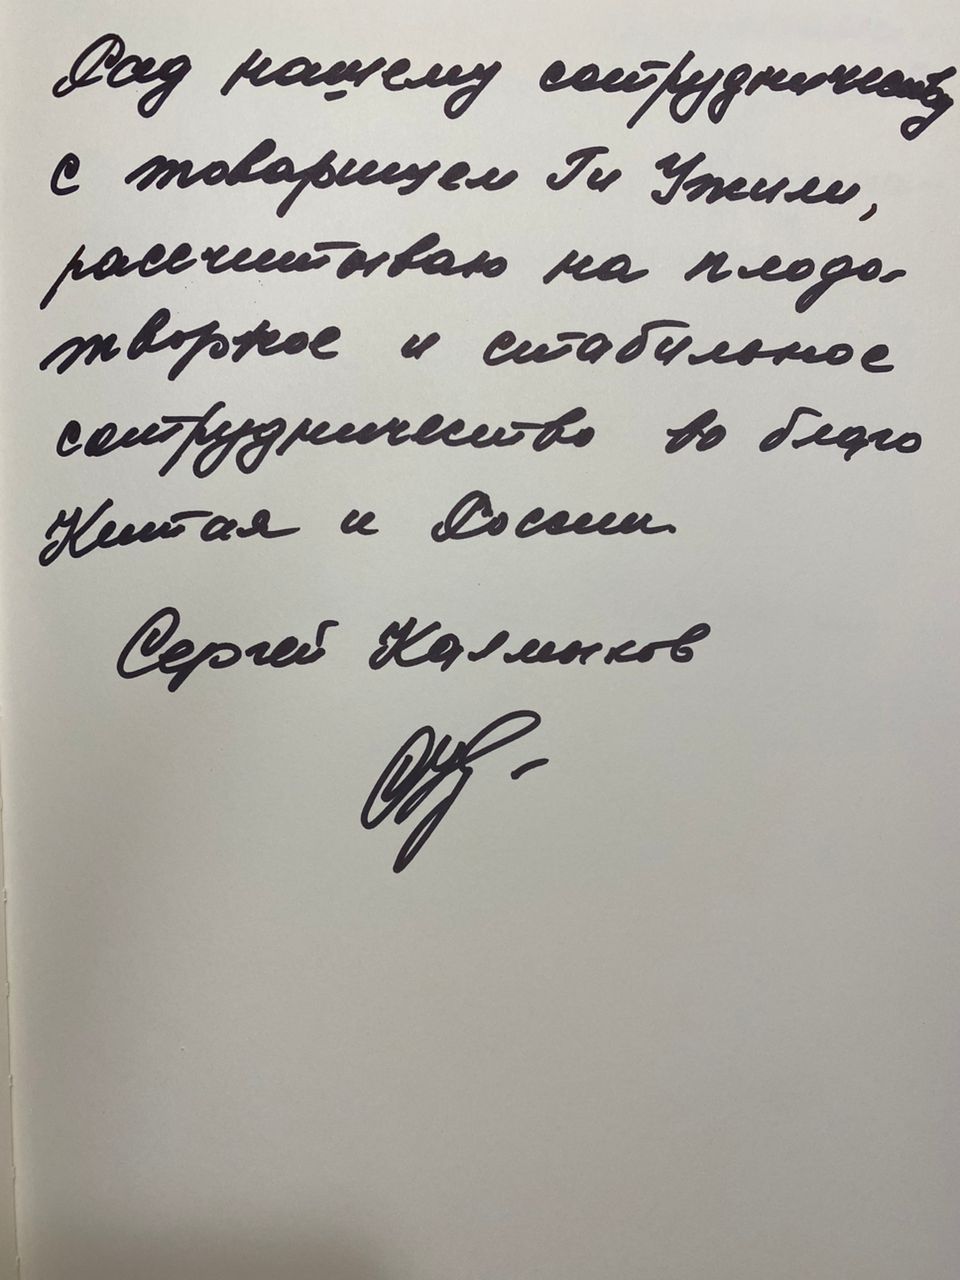 Рад нашему сотрудничеству
с товарищем Ги Ужили,
рассчитываю на плодо-
творное и стабильное
сотрудничество во благо
Китая и России.
Сергей Калмыков